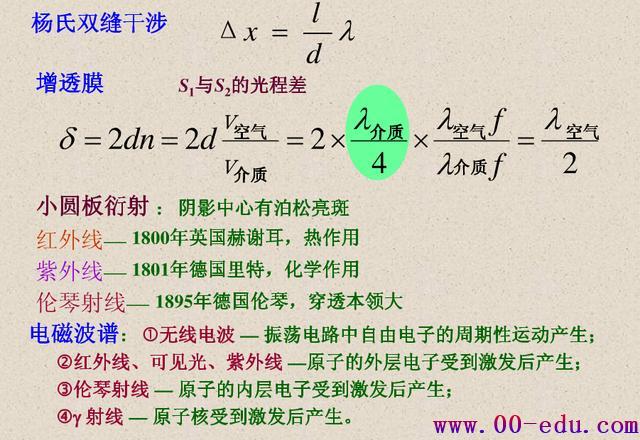 杨氏双缝干涉 Δx = l/d λ
增透膜 S₁与S₂的光程差
δ = 2dn = 2d V空气/V介质 = 2 × λ介质/4 × λ空气f/λ介质f = λ空气/2
小圆板衍射： 阴影中心有泊松亮斑
红外线— 1800年英国赫谢耳，热作用
紫外线— 1801年德国里特，化学作用
伦琴射线— 1895年德国伦琴，穿透本领大
电磁波谱：①无线电波 — 振荡电路中自由电子的周期性运动产生；
②红外线、可见光、紫外线 —原子的外层电子受到激发后产生；
③伦琴射线 — 原子的内层电子受到激发后产生；
④γ 射线 — 原子核受到激发后产生。
www.00-edu.com